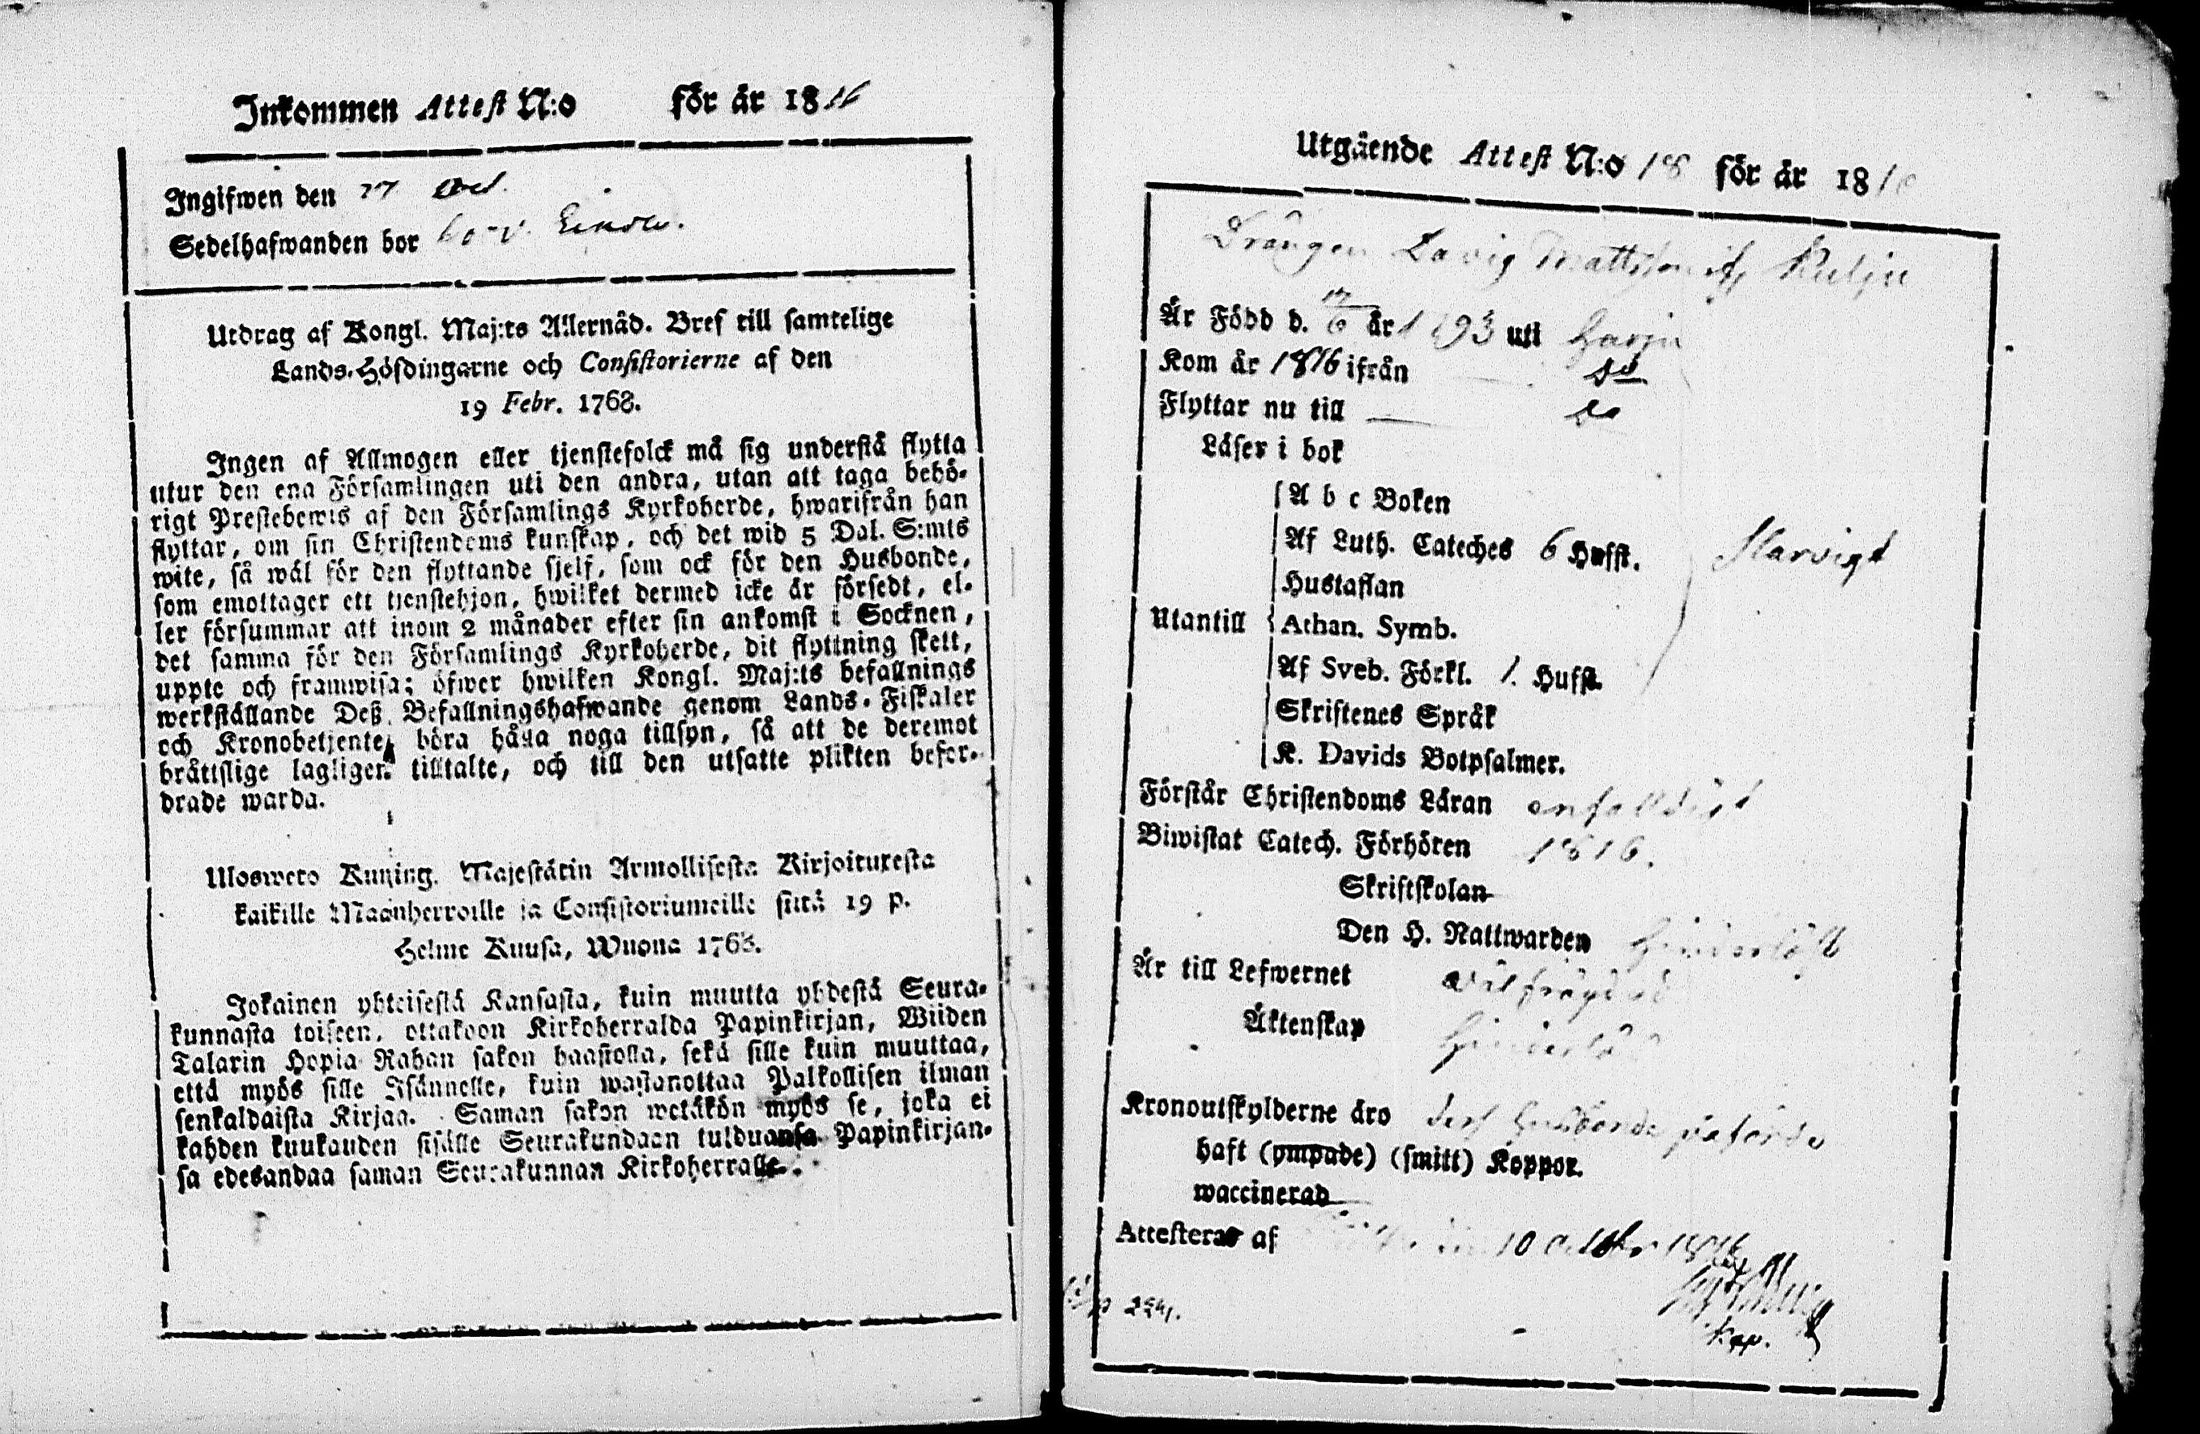 Inkommen Attest N:o för år 1816
Ingifwen den 27 Oct.
Sedelhafwanden bor
Utdrag af Kongl. Maj:ts Allernåd. Bref till samtelige
Lands-Höfdingarne och Consistorierne af den
19 Febr. 1768.
Ingen af Allmogen eller tjenstefolck må sig understå flytta
utur den ena Församlingen uti den andra, utan att taga behö-
rigt Prestebewis af den Församlings Kyrkoherde, hwarifrån han
flyttar, om sin Christendoms kunskap, och det wid 5 Dal. S:mts
wite, så wäl för den flyttande sjelf, som ock för den Husbonde,
som emottager ett tjenstehjon, hwilket dermed icke är försedt, el-
ler försummar att inom 2 månader efter sin ankomst i Socknen,
det samma för den Församlings Kyrkoherde, dit flyttning skett,
uppte och framwisa; öfwer hwilken Kongl. Maj:ts befallnings
werkställande Deß Befallningshafwande genom Lands-Fiskaler
och Kronobetjente böra hålla noga tillsyn, så att de deremot
bråttslige lagligen tilltalte, och till den utsatte plikten befor-
drade warda.
Uloswero Kuning. Majestätin Armollisesta Kirjoituxesta
kaikille Maanherroille ja Consistoriumeille siitä 19 p.
Helme Kuusa, Wuona 1768.
Jokainen yhteisestä Kansasta, kuin muutta yhdestä Seura-
kunnasta toiseen, ottakoon Kirkoherralda Papinkirjan, Wiiden
Talarin Hopia Rahan sakon haastolla, sekä sille kuin muuttaa,
että myös sille Isännelle, kuin wastanottaa Palkollisen ilman
senkaldaista Kirjaa. Saman sakon wetäkön myös se, joka ei
kahden kuukauden sisälle Seurakundaan tulduansa Papinkirjan-
sa edesandaa saman Seurakunnan Kirkoherralle.
Utgående Attest N:o 18 för år 181
Drängen David Mattsson ifr Kulju
Är Född d. 17/6 år 1793 uti Harju
Kom år 1816 ifrån do
Flyttar nu till do
Läser i bok
A b c Boken
Af Luth. Cateches 6 Hufst. Slarvigt
Hustaflan
Utantill Athan. Symb.
Af Sveb. Förkl. 1. Hufst.
Skriftenes Språk
K. Davids Botpsalmer.
Förstår Christendoms Läran enfalldigt
Biwistat Catech. Förhören 1816.
Skriftskolan
Den H. Nattwarden Hinderlöst
Är till Lefwernet Välfrägdad
Äktenskap Hinderlös
Kronoutskylderne äro
haft (ympade) (smitt) Koppor.
waccinerad
Attesteras af 10 October 1816
Kap.